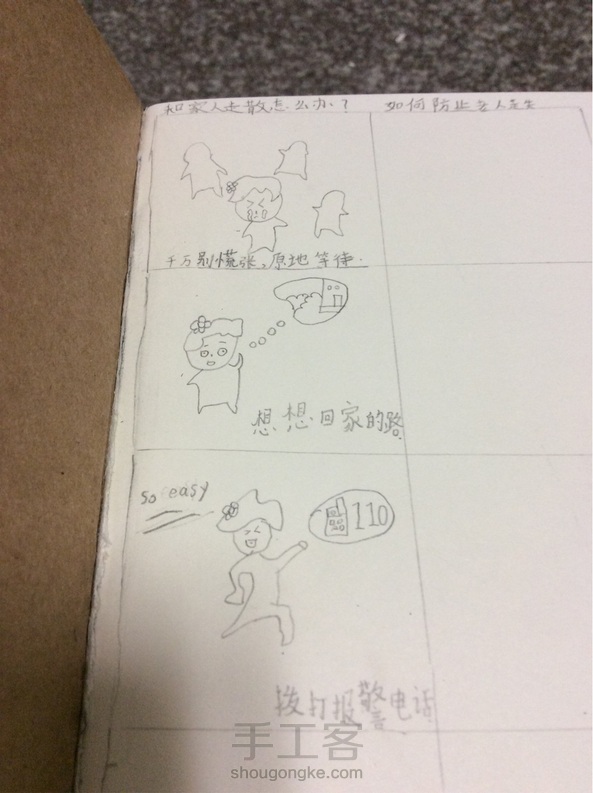 和家人走散怎么办？
如何防止家人走失
千万别慌张，原地等待.
想想回家的路
so easy
110
拨打报警电话
手工客
shougongke.com